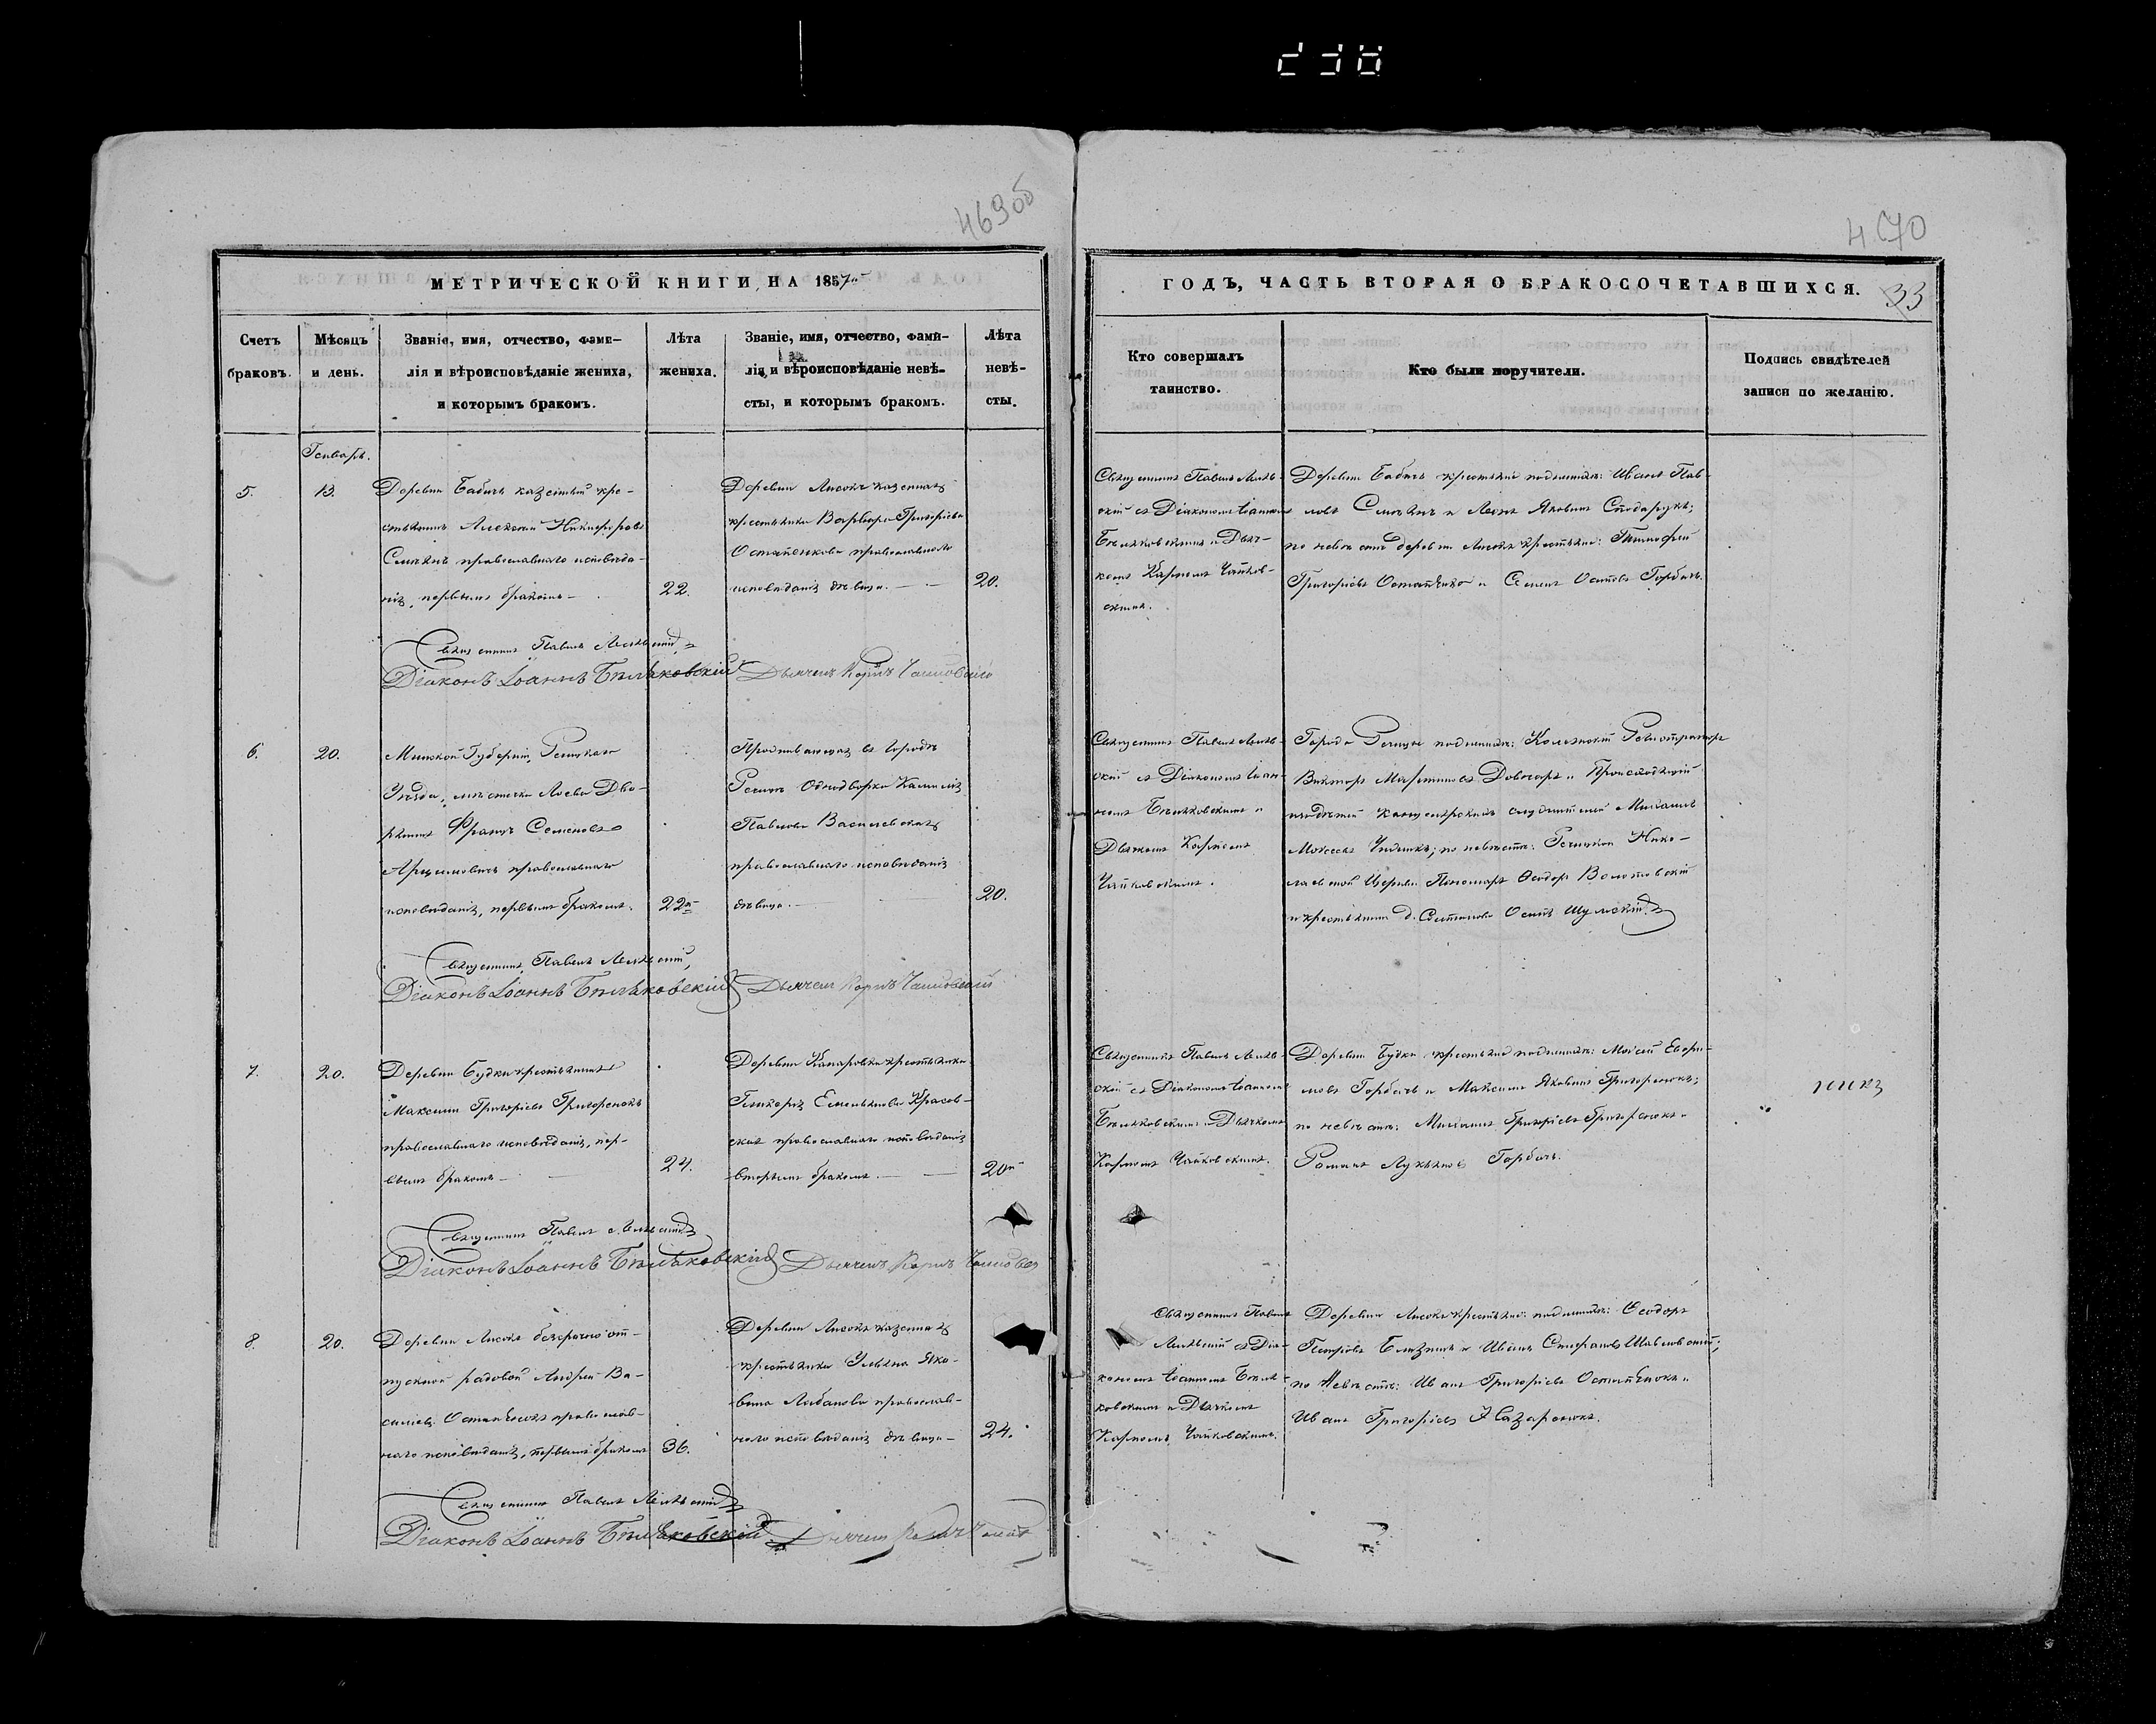 469об
470
МЕТРИЧЕСКОЙ КНИГИ НА 1857й
ГОДЪ, ЧАСТЬ ВТОРАЯ О БРАКОСОЧЕТАВШИХСЯ.
33
Счетъ браковъ.
Мѣсяцъ и день.
Званіе, имя, отчество, фами-
лія и вѣроисповѣданіе жениха,
и которымъ бракомъ.
Лѣта жениха.
Званіе, имя, отчество, фами-
лія и вѣроисповѣданіе невѣ-
сты, и которымъ бракомъ.
Лѣта невѣ-
сты.
Кто совершалъ
таинство.
Кто были поручители.
Подпись свидѣтелей
записи по желанію.
Генварь.
5.
13.
Деревни Бабичъ казенный кре-
стьянинъ Алексѣй Никифоровъ
православнаго исповѣда-
нія, первымъ бракомъ
22.
Деревни Лисокъ казенная
крестьянка Варвара Григорьева
Остапенкова православнаго
исповѣданія дѣвица.
20.
Священникъ Павелъ
съ Діакономъ Іоанномъ
Бѣляковскимъ и Дьяч-
комъ Карпомъ Чайков-
скимъ.
Деревни Бабичъ крестьяне по женихѣ: Иванъ Пав-
ловъ и Леонъ Яковлевъ
по невѣстѣ деревни Лисокъ крестьяне: Тимофей
Григорьевъ Остапенко и Семенъ Горбачъ.
Священникъ Павелъ
Діаконъ Іоаннъ Бѣляковскій
Дьячекъ Карпъ Чайковскій
6.
20.
Минской Губерніи, Рѣчицкаго
Уѣзда, мѣстечка Лоева Дво-
рянинъ Францъ Семеновъ
православнаго
исповѣданія, первымъ бракомъ.
22а
Проживающая въ городѣ
Рѣчицѣ Однодворка Камилія
Павлова Василевская
православнаго исповѣданія
дѣвица.
20.
Священникъ Павелъ
съ Діакономъ Іоан-
номъ Бѣляковскимъ и
Дьячкомъ Карпомъ
Чайковскимъ.
Города Рѣчицы по женихѣ: Колежскій Регистраторъ
Викторъ Мартиновъ и Происходящій
изъ дѣтей канцелярскихъ служителей Михаилъ
Моисеевъ по невѣстѣ: Рѣчицкой Нико-
лаевской Церкви Пономарь Ѳеодоръ
и крестьянинъ д. Осипъ Шумскій
Священникъ Павелъ
Діаконъ Іоаннъ Бѣляковскій
Дьячекъ Карпъ Чайковскій
7.
20.
Деревни Будки крестьянинъ
Максимъ Григорьевъ Григоренокъ
православнаго исповѣданія, пер-
вымъ бракомъ
24.
Деревни крестьянка
Гликерія Емельянова Красов-
ская православнаго исповѣданія
вторымъ бракомъ.
20ть
Священникъ Павелъ
съ Діакономъ Іоанномъ
Бѣляковскимъ и Дьячкомъ
Карпомъ Чайковскимъ.
Деревни Будки крестьяне по женихѣ: Моисей
Горбачъ и Максимъ Яковлевъ Григоренокъ;
по невѣстѣ: Михаилъ Григорьевъ Григоренокъ и
Романъ Лукьяновъ Горбачъ.
Священникъ Павелъ
Діаконъ Іоаннъ Бѣляковскій
Дьячекъ Карпъ
8.
20.
Деревни Лисокъ безсрочно от-
пускной рядовой Андрей Ва-
сильевъ Остапенокъ православ-
наго исповѣданія, первымъ бракомъ
36.
Деревни Лисокъ казенная
крестьянка Ульяна Яко-
влева православ-
наго исповѣданія дѣвица
24.
Священникъ Павелъ
съ Діа-
кономъ Іоанномъ Бѣля-
ковскимъ и Дьячкомъ
Карпомъ Чайковскимъ.
Деревни Лисокъ крестьяне по женихѣ: Ѳеодоръ
Петровъ и Иванъ Стефановъ
по невѣстѣ: Иванъ Григорьевъ Остапенокъ и
Иванъ Григорьевъ Назаренокъ.
Священникъ Павелъ
Діаконъ Іоаннъ Бѣляковскій
Дьячекъ Карпъ